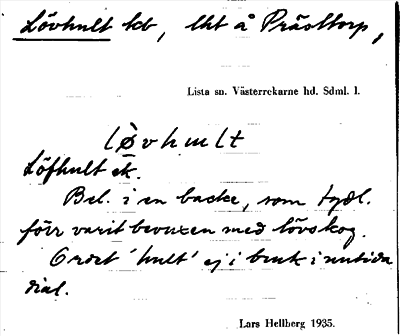 Lövhult kb, lht å Prästtorp,
Lista sn. Västerrekarne hd. Sdml. l.
lǿvhult
Löfhult ek.
Bel. i en backe, som tydl.
förr varit bevuxen med lövskog.
Ordet 'hult' ej i bruk i nutida
dial.
Lars Hellberg 1935.